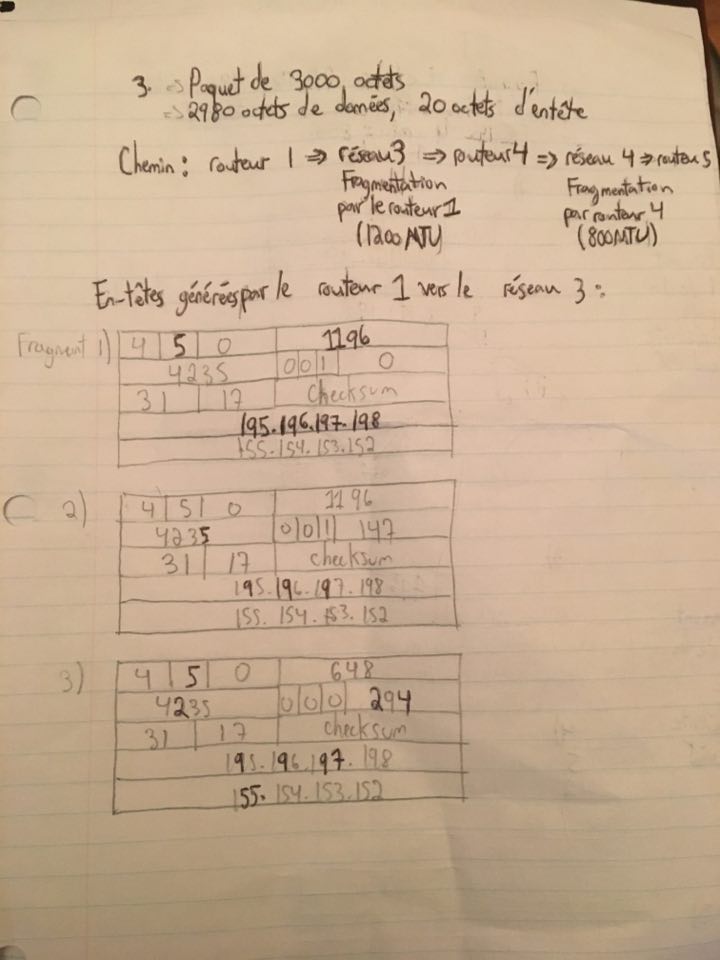 3. => Paquet de 3000 octets
=> 2980 octets de données, 20 octets d'entête
Chemin: routeur 1 => réseau 3 => routeur 4 => réseau 4 => routeur 5
Fragmentation par le routeur 1 (1200 MTU)
Fragmentation par routeur 4 (800 MTU)
En-têtes générées par le routeur 1 vers le réseau 3:
Fragment 1)
4 5 0 1196
4235 0 0 1 0
31 17 Checksum
195.196.197.198
155.154.153.152
2)
4 5 0 1196
4235 0 0 1 147
31 17 checksum
195.196.197.198
155.154.153.152
3)
4 5 0 648
4235 0 0 0 294
31 17 checksum
195.196.197.198
155.154.153.152